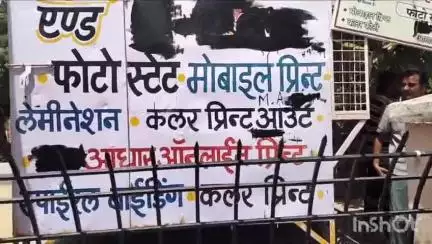 एण्ड
फोटो स्टेट • मोबाइल प्रिन्ट
M.A
लेमीनेशन • कलर प्रिन्ट आउट •
आधार ऑनलाईन प्रिन्ट
स्पाईरल बाईडिंग • कलर प्रिन्ट •
फोटो
• मोबाइल प्रिन्ट
InShOt